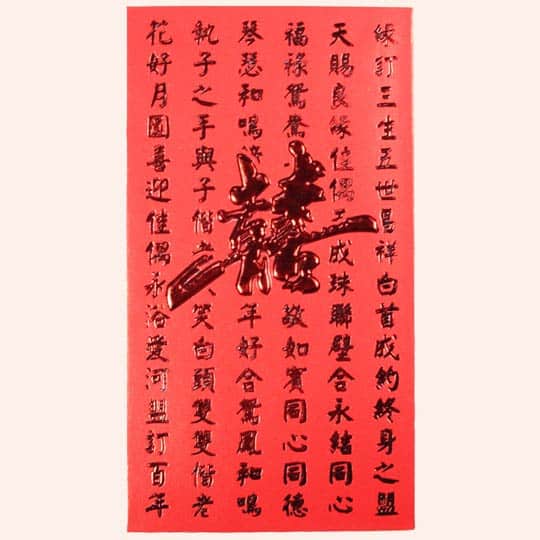 緣訂三生五世昌祥白首成約終身之盟
天賜良緣佳偶天成珠聯璧合永結同心
福祿鴛鴦敬如賓同心同德
琴瑟和鳴年好合鸞鳳和鳴
執子之手與子偕老笑白頭雙雙偕老
花好月圓喜迎佳偶永浴愛河盟訂百年
囍